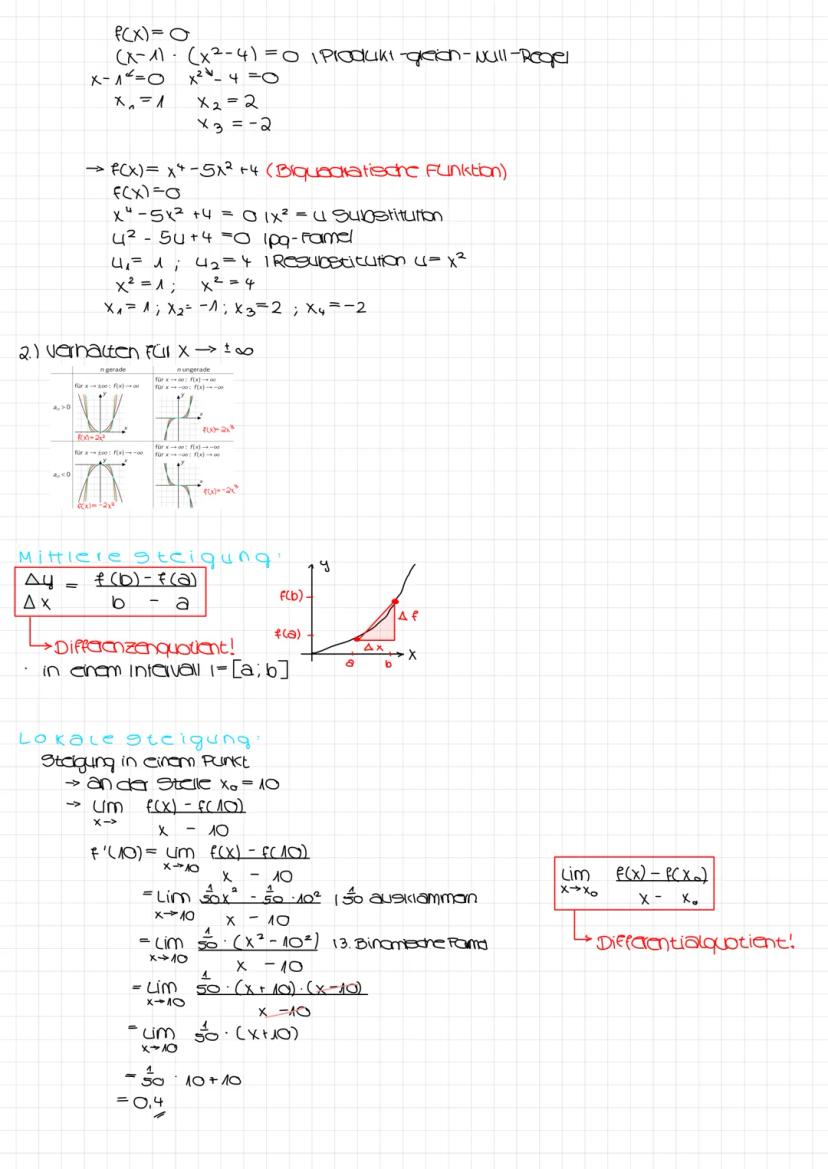 f(x) = 0
(x-1) · (x²-4) = 0 | Produkt-gleich-Null-Regel
x-1=0 x²-4=0
x₁=1 x₂=2
x₃=-2
→ f(x) = x⁴-5x²+4 (Biquadratische Funktion)
f(x)=0
x⁴-5x²+4 = 0 | x² = u Substitution
u²-5u+4=0 | pq-Formel
u₁= 1 ; u₂=4 | Resubstitution u=x²
x²=1 ; x²=4
x₁=1 ; x₂=-1 ; x₃=2 ; x₄=-2
2.) Verhalten für x → ±∞
n gerade n ungerade
für x → ±∞ : f(x) → ∞ für x → ∞ : f(x) → ∞
für x → -∞ : f(x) → -∞
aₙ>0
y y
x x
f(x)=2x² f(x)=2x³
für x → ±∞ : f(x) → -∞ für x → ∞ : f(x) → -∞
für x → -∞ : f(x) → ∞
aₙ<0
y x y
x
f(x)=-2x² f(x)=-2x³
Mittlere Steigung:
Δy/Δx = (f(b)-f(a))/(b - a)
→ Differenzenquotient!
· in einem Intervall I=[a;b]
y
f(b)
Δf
f(a)
Δx
a b x
Lokale Steigung:
Steigung in einem Punkt
→ an der Stelle x₀=10
→ lim x→ (f(x)-f(10))/(x - 10)
f'(10) = lim x→10 (f(x)-f(10))/(x - 10)
= lim x→10 (1/50x² - 1/50 · 10²)/(x - 10) | 1/50 ausklammern
= lim x→10 (1/50 · (x²-10²))/(x - 10) | 3. Binomische Formel
= lim x→10 (1/50 · (x+10)·(x-10))/(x-10)
= lim x→10 1/50 · (x+10)
= 1/50 · 10+10
= 0,4
lim x→x₀ (f(x)-f(x₀))/(x - x₀)
→ Differentialquotient!